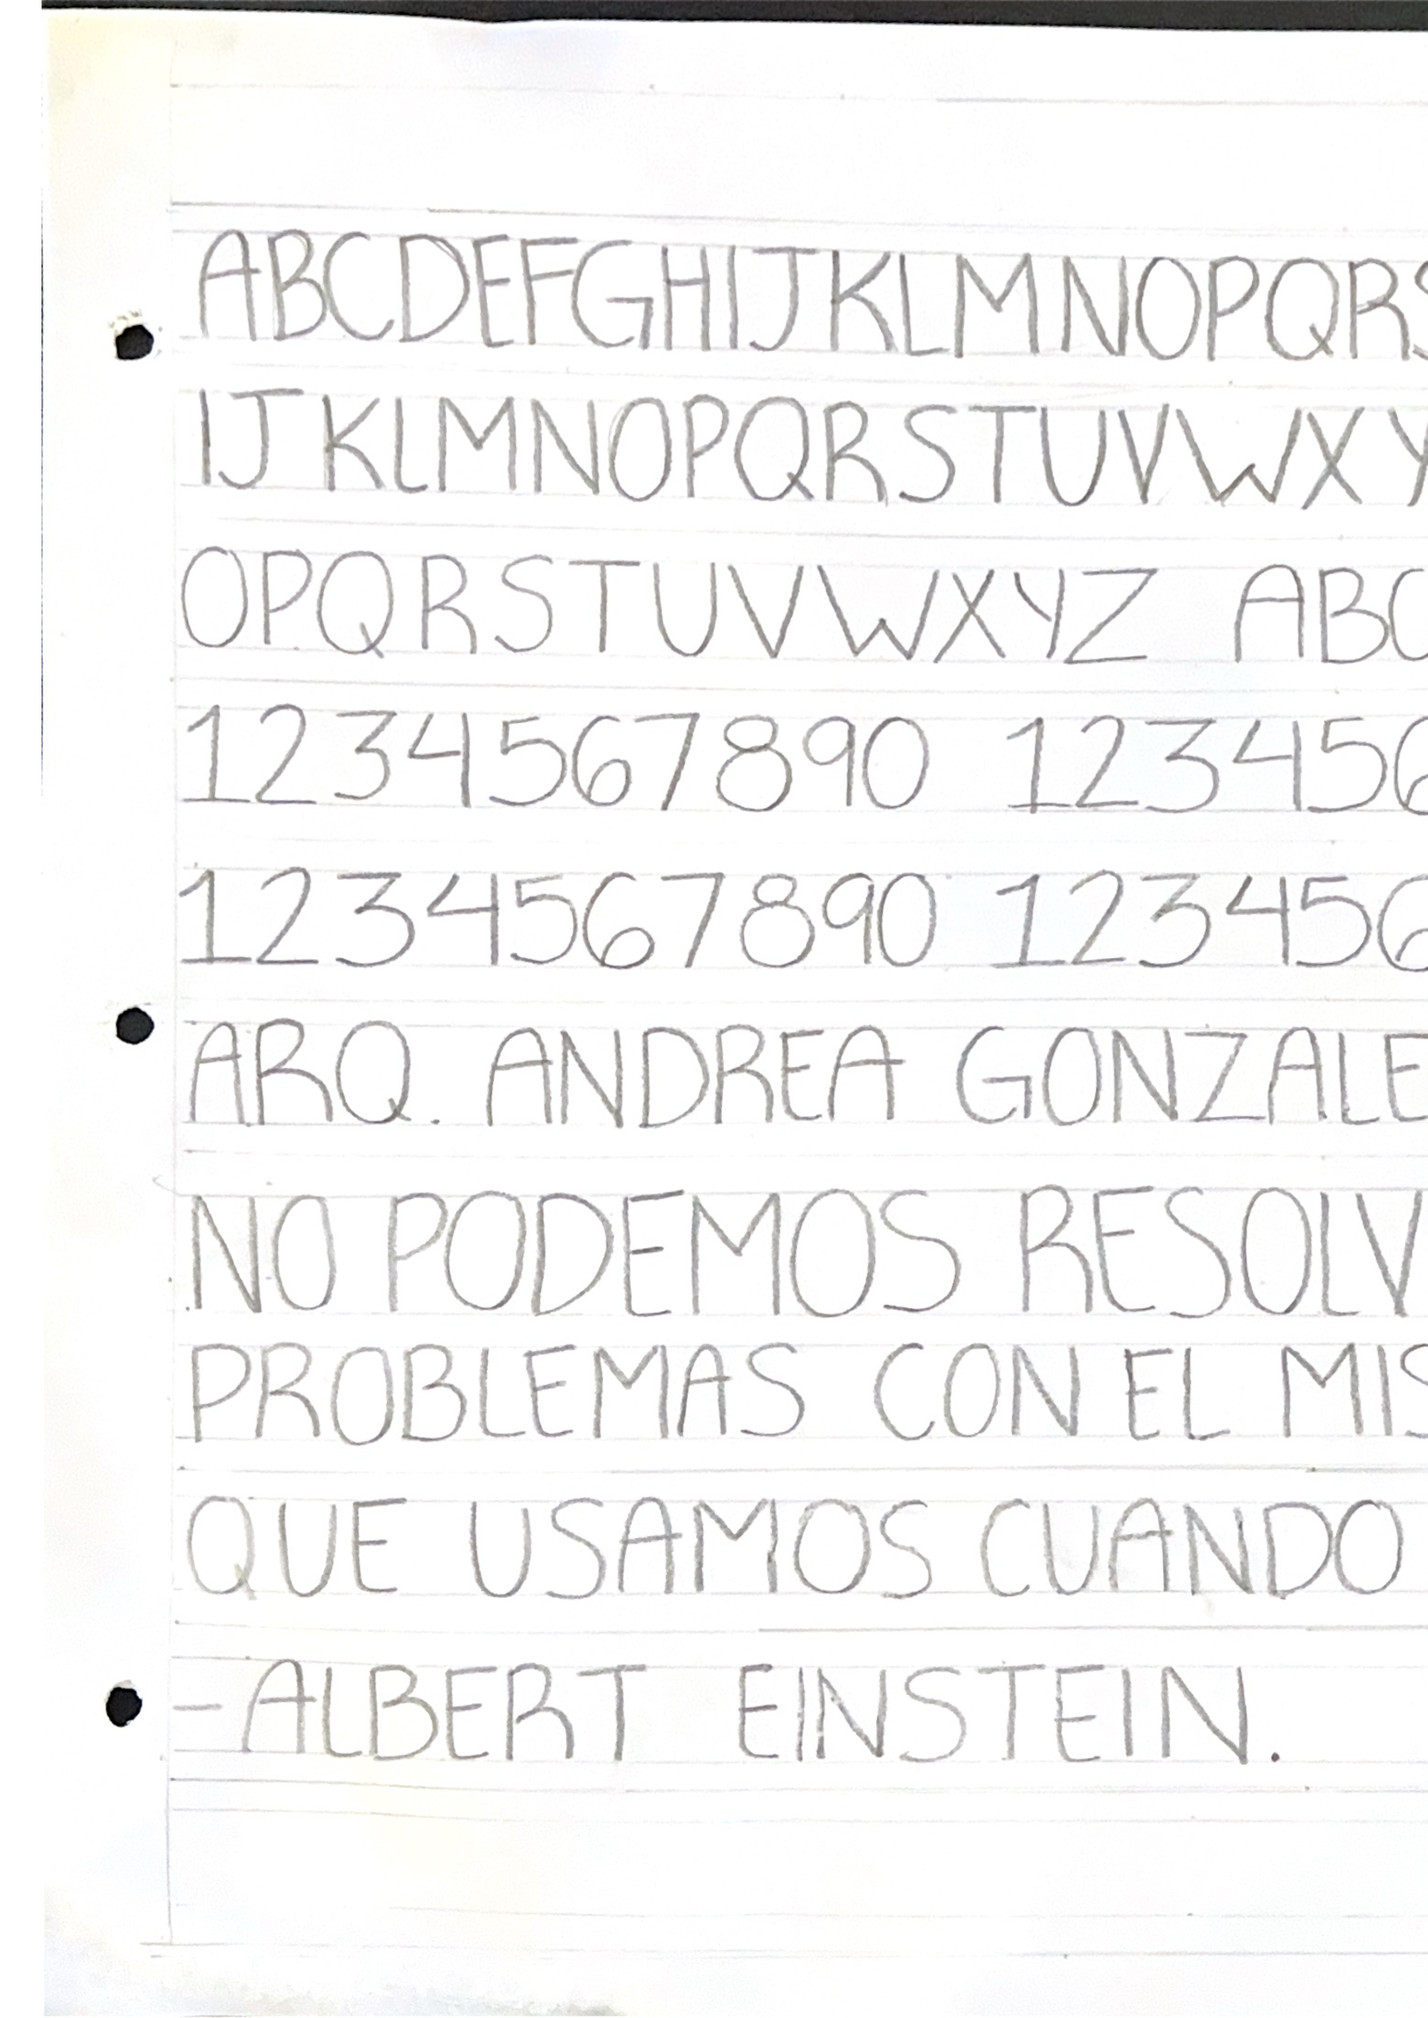 ABCDEFGHIJKLMNOPQRS
IJKLMNOPQRSTUVWXY
OPQRSTUVWXYZ ABC
1234567890 123456
1234567890 123456
ARQ. ANDREA GONZALE
NO PODEMOS RESOLV
PROBLEMAS CON EL MIS
QUE USAMOS CUANDO
-ALBERT EINSTEIN.